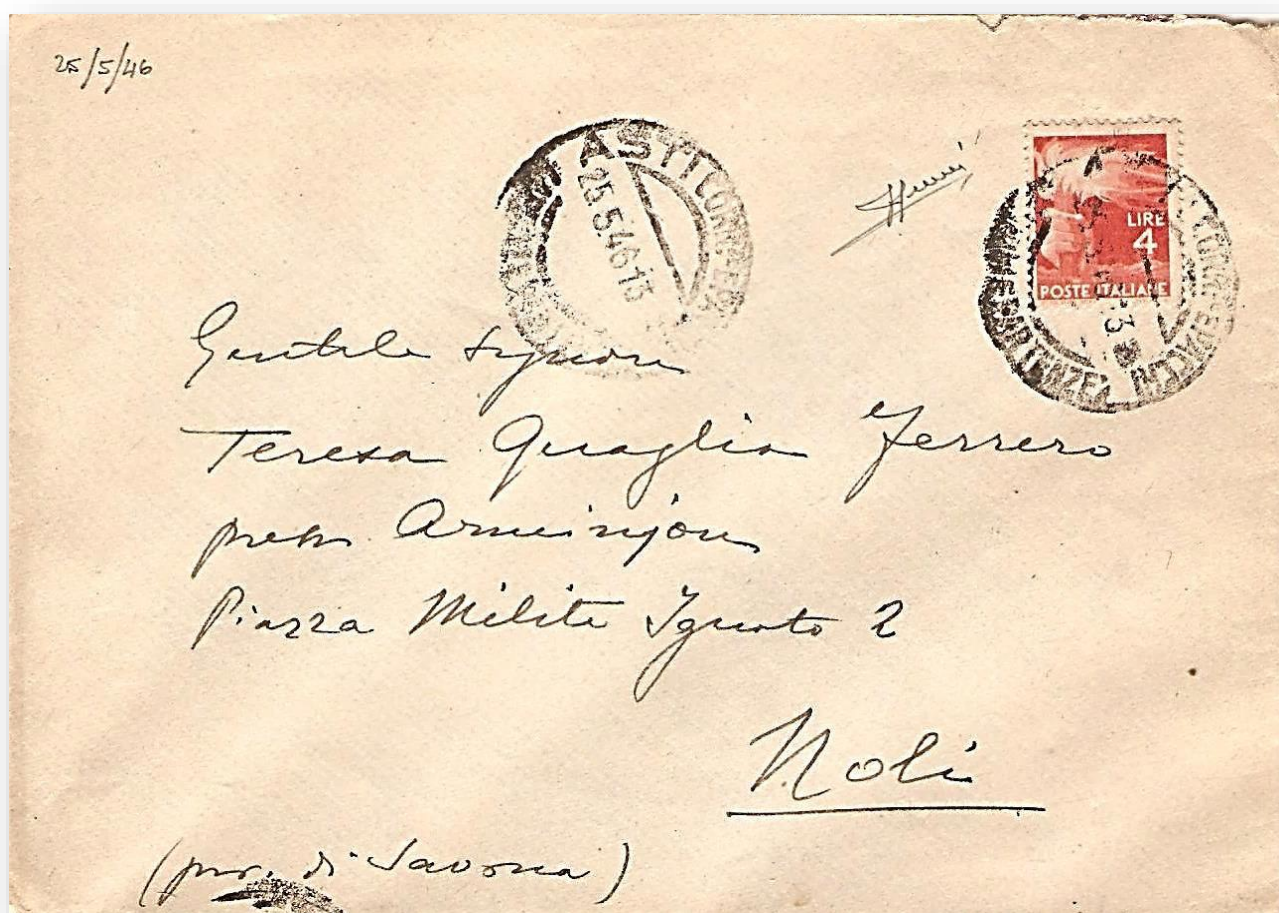 25/5/46
ASTI CORR. E PACCHI
25.5.46-13
LIRE
4
POSTE ITALIANE
PARTENZE
Gentile Signora
Teresa Quaglia Ferrero
presso Arminjon
Piazza Milite Ignoto 2
Noli
(prov. di Savona)